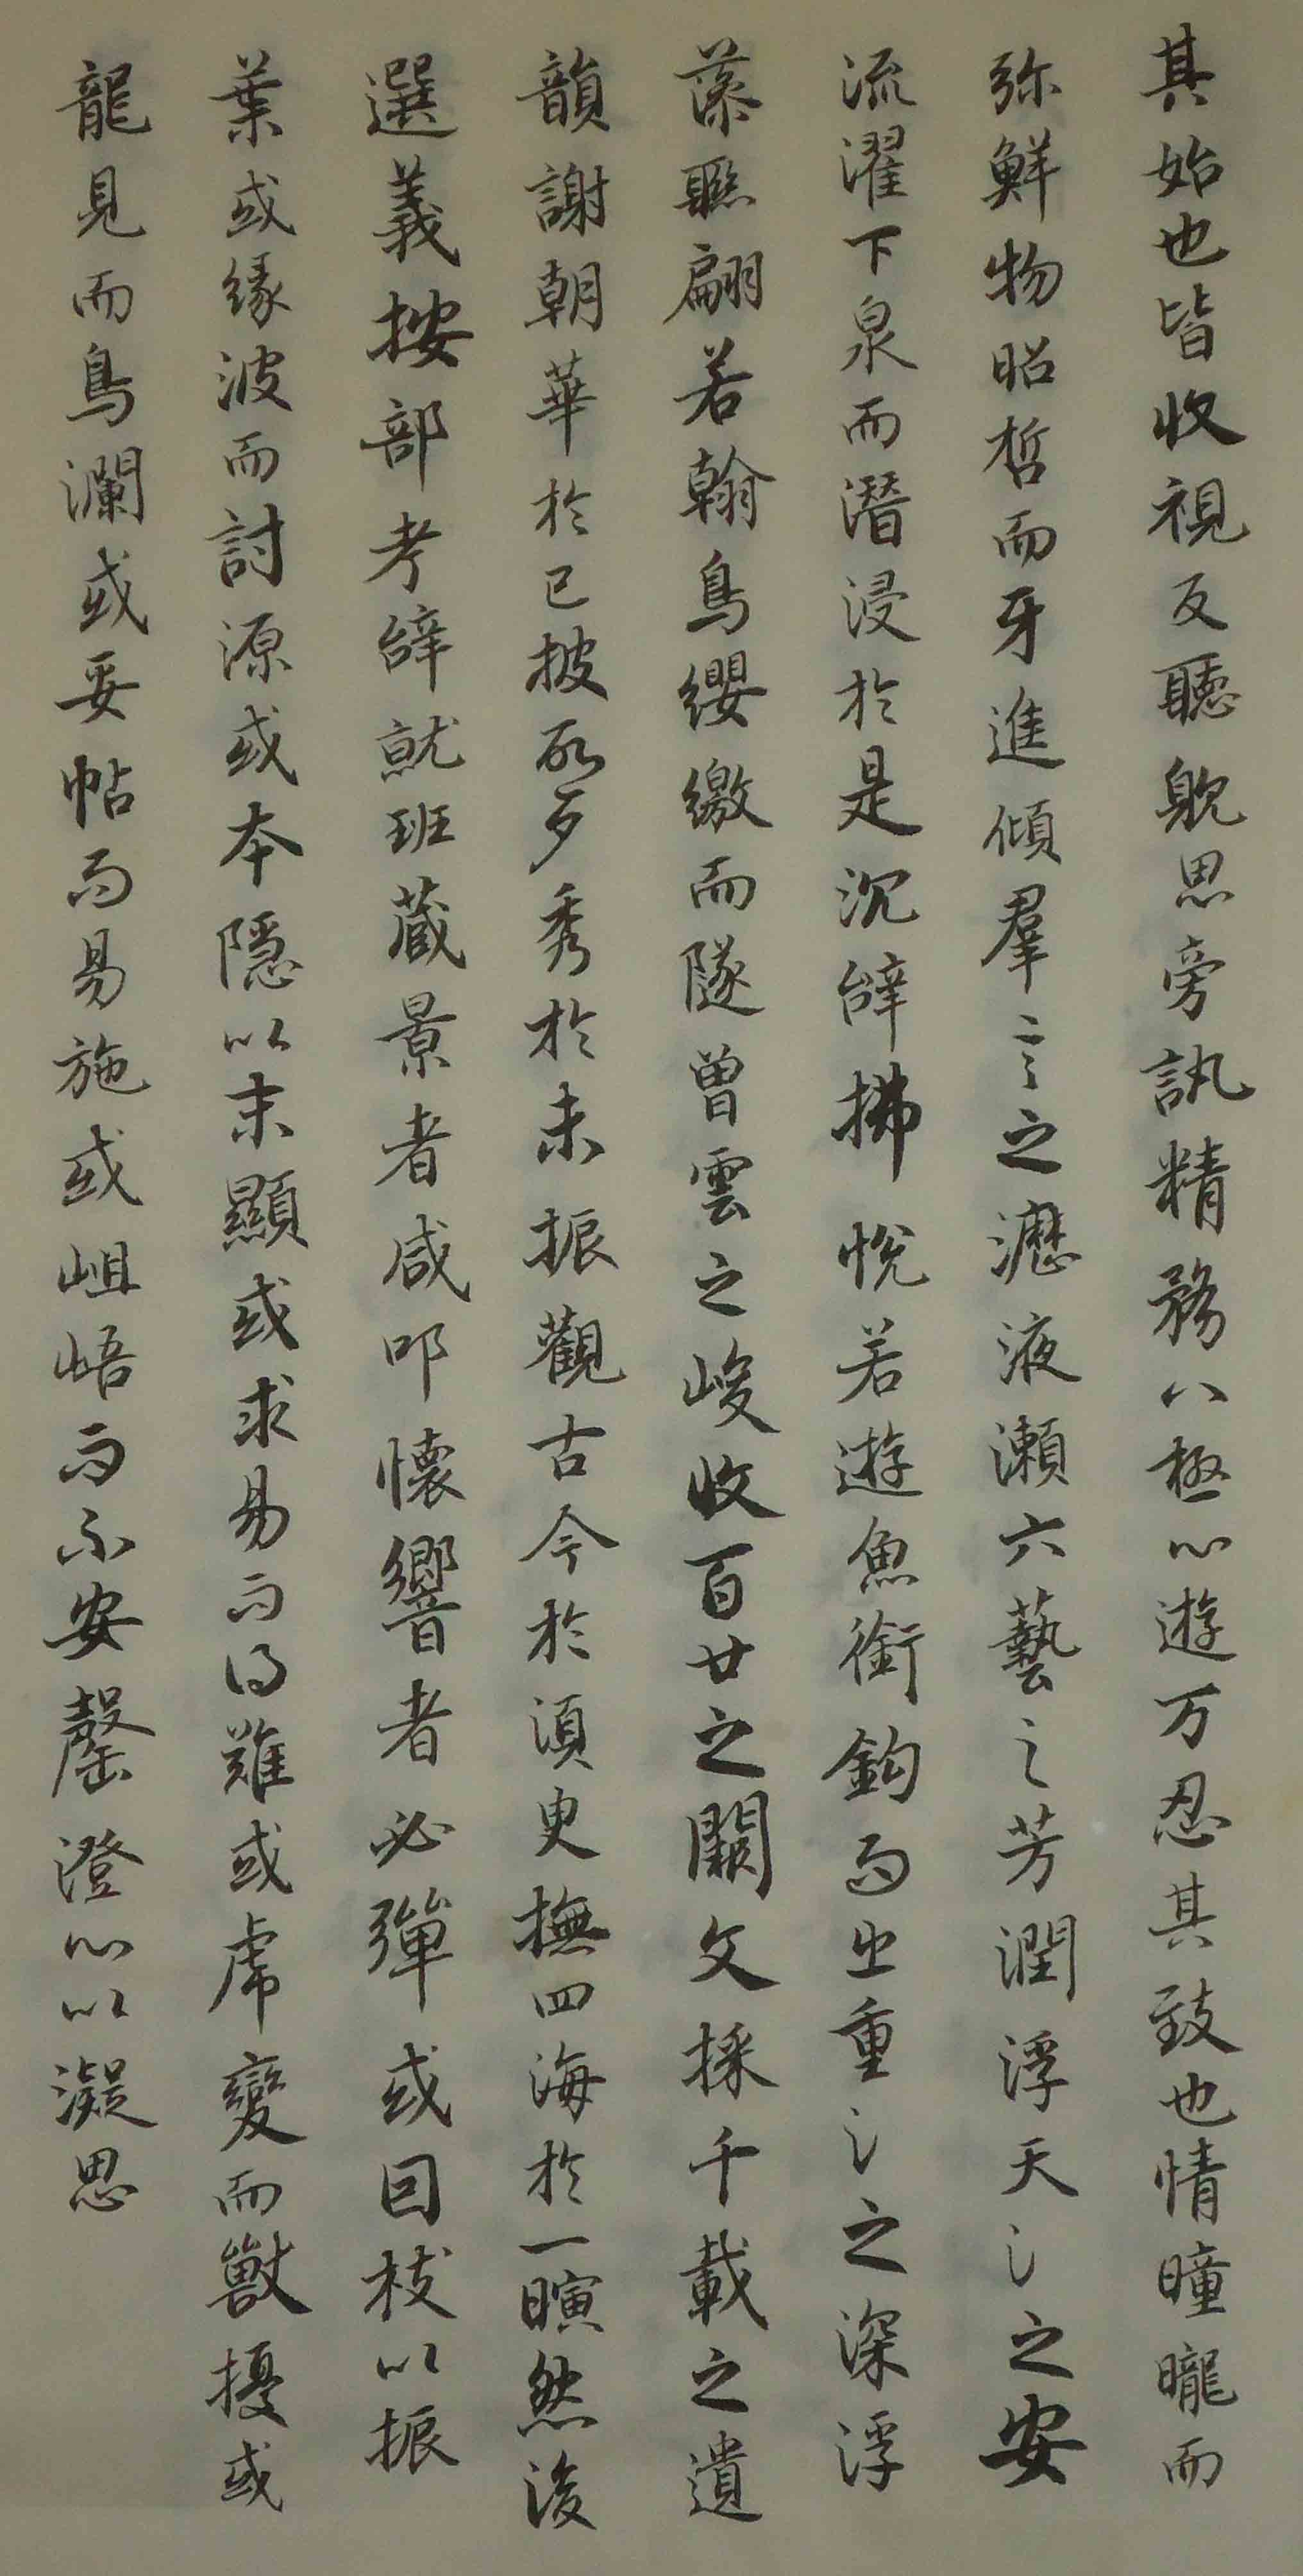 其始也皆收視反聽躭思旁訊精務八極心遊万忍其致也情曈曨而
弥鮮物昭晢而牙進傾羣言之瀝液瀨六藝之芳潤浮天淵之安
流濯下泉而潛浸於是沉辭拂悅若遊魚銜鈎而出重淵之深浮
藻聮翩若翰鳥纓繳而隧曾雲之峻收百世之闕文採千載之遺
韻謝朝華於已披啓夕秀於未振觀古今於須臾撫四海於一瞚然後
選義按部考辭就班藏景者咸叩懷響者必彈或因枝以振
葉或緣波而討源或本隱以末顯或求易而得難或虎變而獸擾或
龍見而鳥瀾或妥帖而易施或岨峿而不安罄澄心以凝思